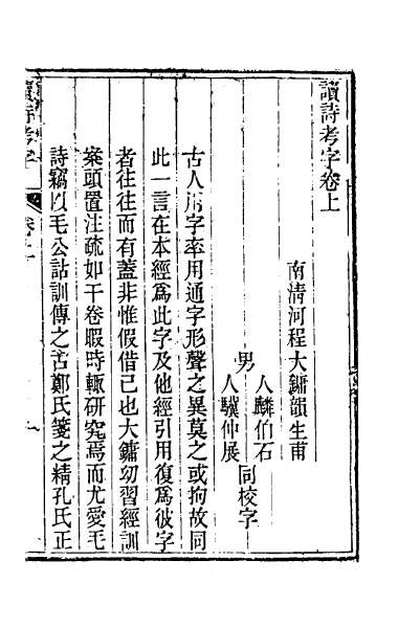 讀詩考字卷上
南淸河程大鏞韻生甫
男
人麟伯石
人驥仲展
同校字
古人用字率用通字形聲之異莫之或拘故同
此一言在本經爲此字及他經引用復爲彼字
者往往而有蓋非惟假借已也大鏞幼習經訓
案頭置注疏如干卷暇時輒硏究焉而尤愛毛
詩竊以毛公詁訓傳之古鄭氏箋之精孔氏正
讀詩考字
卷上